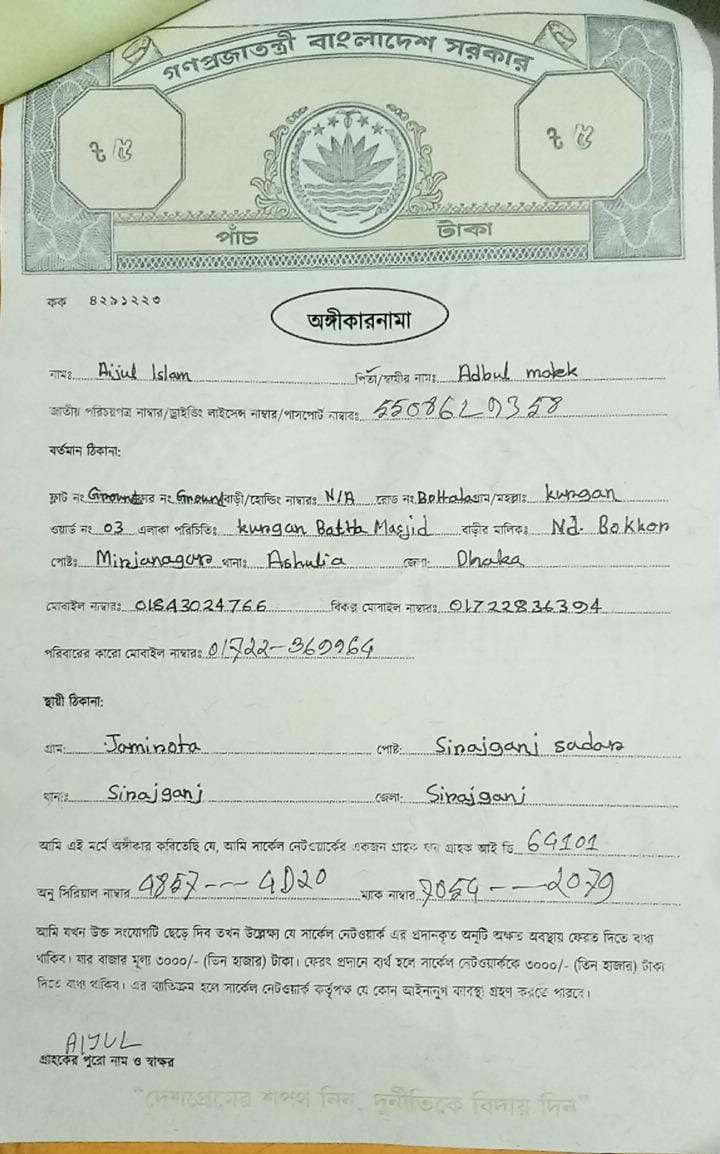 গণপ্রজাতন্ত্রী বাংলাদেশ সরকার
৳ ৫ ৳ ৫
পাঁচ টাকা
কক ৪২৯১২২৩
অঙ্গীকারনামা
নামঃ Aijul Islam পিতা/স্বামীর নামঃ Adbul malek
জাতীয় পরিচয়পত্র নাম্বার/ড্রাইভিং লাইসেন্স নাম্বার/পাসপোর্ট নাম্বারঃ 5508620358
বর্তমান ঠিকানা:
ফ্লাট নং Ground ফ্লোর নং Ground বাড়ী/হোল্ডিং নাম্বারঃ N/A রোড নং Bottala গ্রাম/মহল্লাঃ kurgan
ওয়ার্ড নং 03 এলাকা পরিচিতিঃ kurgan Batta Masjid বাড়ীর মালিকঃ Md. Bakkar
পোষ্টঃ Mirjanagar থানাঃ Ashulia জেলা: Dhaka
মোবাইল নাম্বারঃ 01843024766 বিকল্প মোবাইল নাম্বারঃ 01722836394
পরিবারের কারো মোবাইল নাম্বারঃ 01722-369964
স্থায়ী ঠিকানা:
গ্রাম: Jaminota পোষ্ট: Sirajganj sadar
থানাঃ Sirajganj জেলা: Sirajganj
আমি এই মর্মে অঙ্গীকার করিতেছি যে, আমি সার্কেল নেটওয়ার্কের একজন গ্রাহক যার গ্রাহক আই ডি 64101
অনু সিরিয়াল নাম্বার 4857---4D20 ম্যাক নাম্বার 7054---2079
আমি যখন উক্ত সংযোগটি ছেড়ে দিব তখন উল্লেক্ষ্য যে সার্কেল নেটওয়ার্ক এর প্রদানকৃত অনুটি অক্ষত অবস্থায় ফেরত দিতে বাধ্য
থাকিব। যার বাজার মূল্য ৩০০০/- (তিন হাজার) টাকা। ফেরৎ প্রদানে ব্যর্থ হলে সার্কেল নেটওয়ার্ককে ৩০০০/- (তিন হাজার) টাকা
দিতে বাধ্য থাকিব। এর ব্যতিক্রম হলে সার্কেল নেটওয়ার্ক কর্তৃপক্ষ যে কোন আইনানুগ ব্যবস্থা গ্রহণ করতে পারবে।
AIJUL
গ্রাহকের পুরো নাম ও স্বাক্ষর
"দেশপ্রেমের শপথ নিন, দুর্নীতিকে বিদায় দিন"